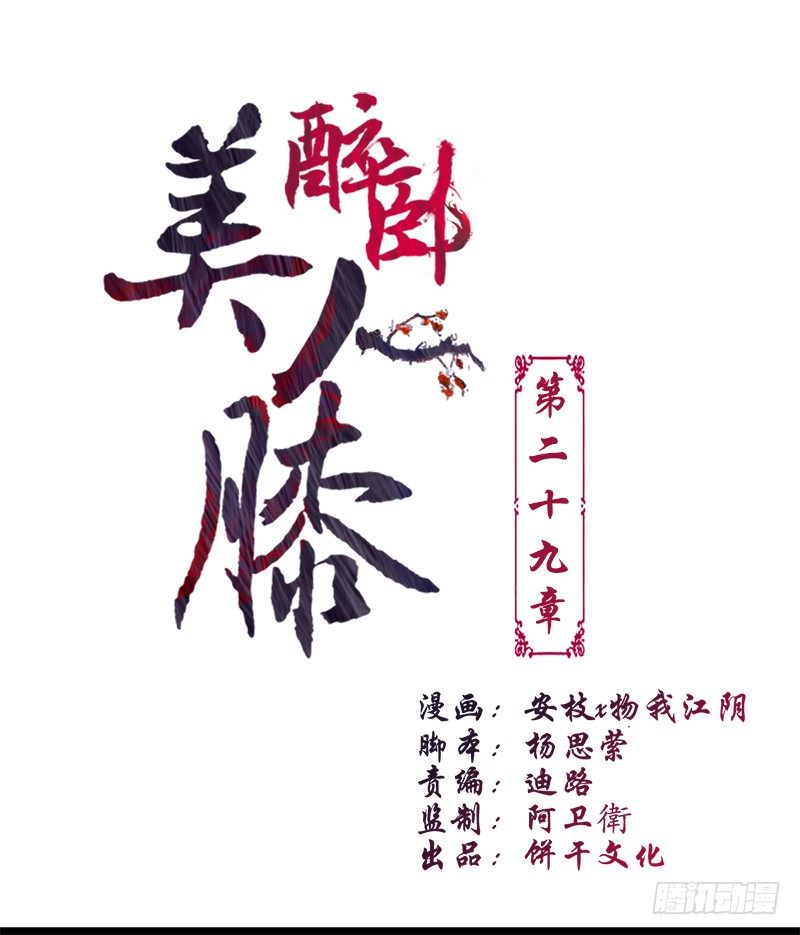 醉卧
美人
膝
第二十九章
漫画：安枝x物我江阴
脚本：杨思萦
责编：迪路
监制：阿卫衛
出品：饼干文化
腾讯动漫